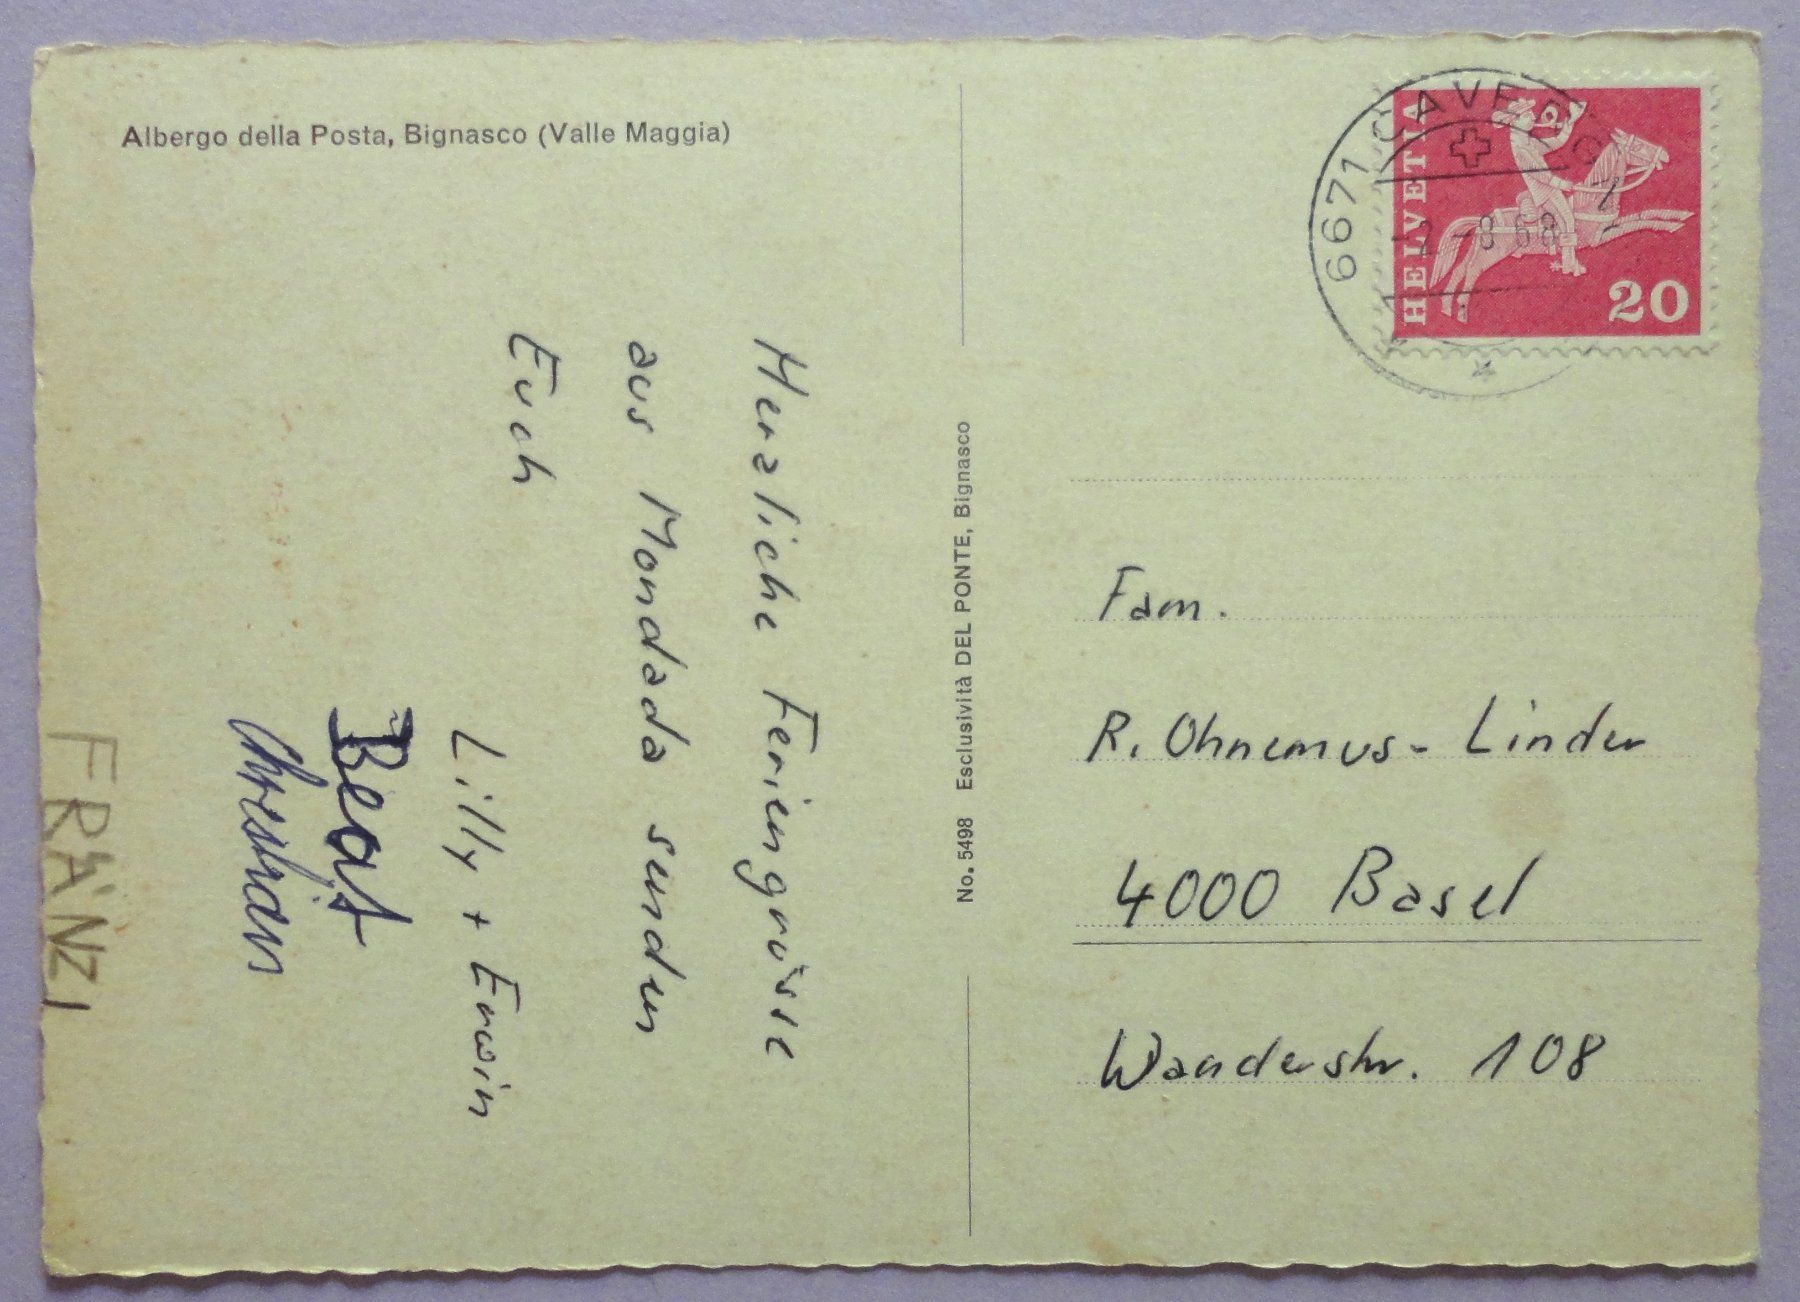 Albergo della Posta, Bignasco (Valle Maggia)
Herzliche Feriengrüsse
aus Mondada senden
Euch
Lilly + Erwin
Beat
Christian
FRÄNZI
No. 5498 Esclusività DEL PONTE, Bignasco
6671 CAVERGNO
-8 68
HELVETIA
20
Fam.
R. Ohnemus-Linder
4000 Basel
Wanderstr. 108